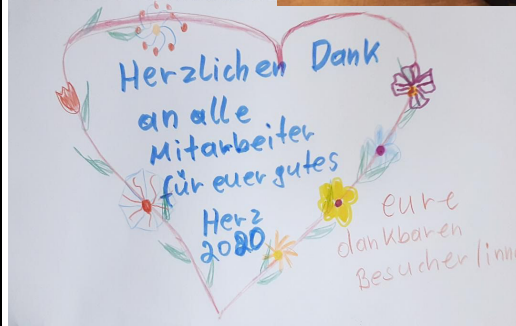 Herzlichen Dank
an alle
Mitarbeiter
für euer gutes
Herz
2020
eure
dankbaren
Besucher/inn